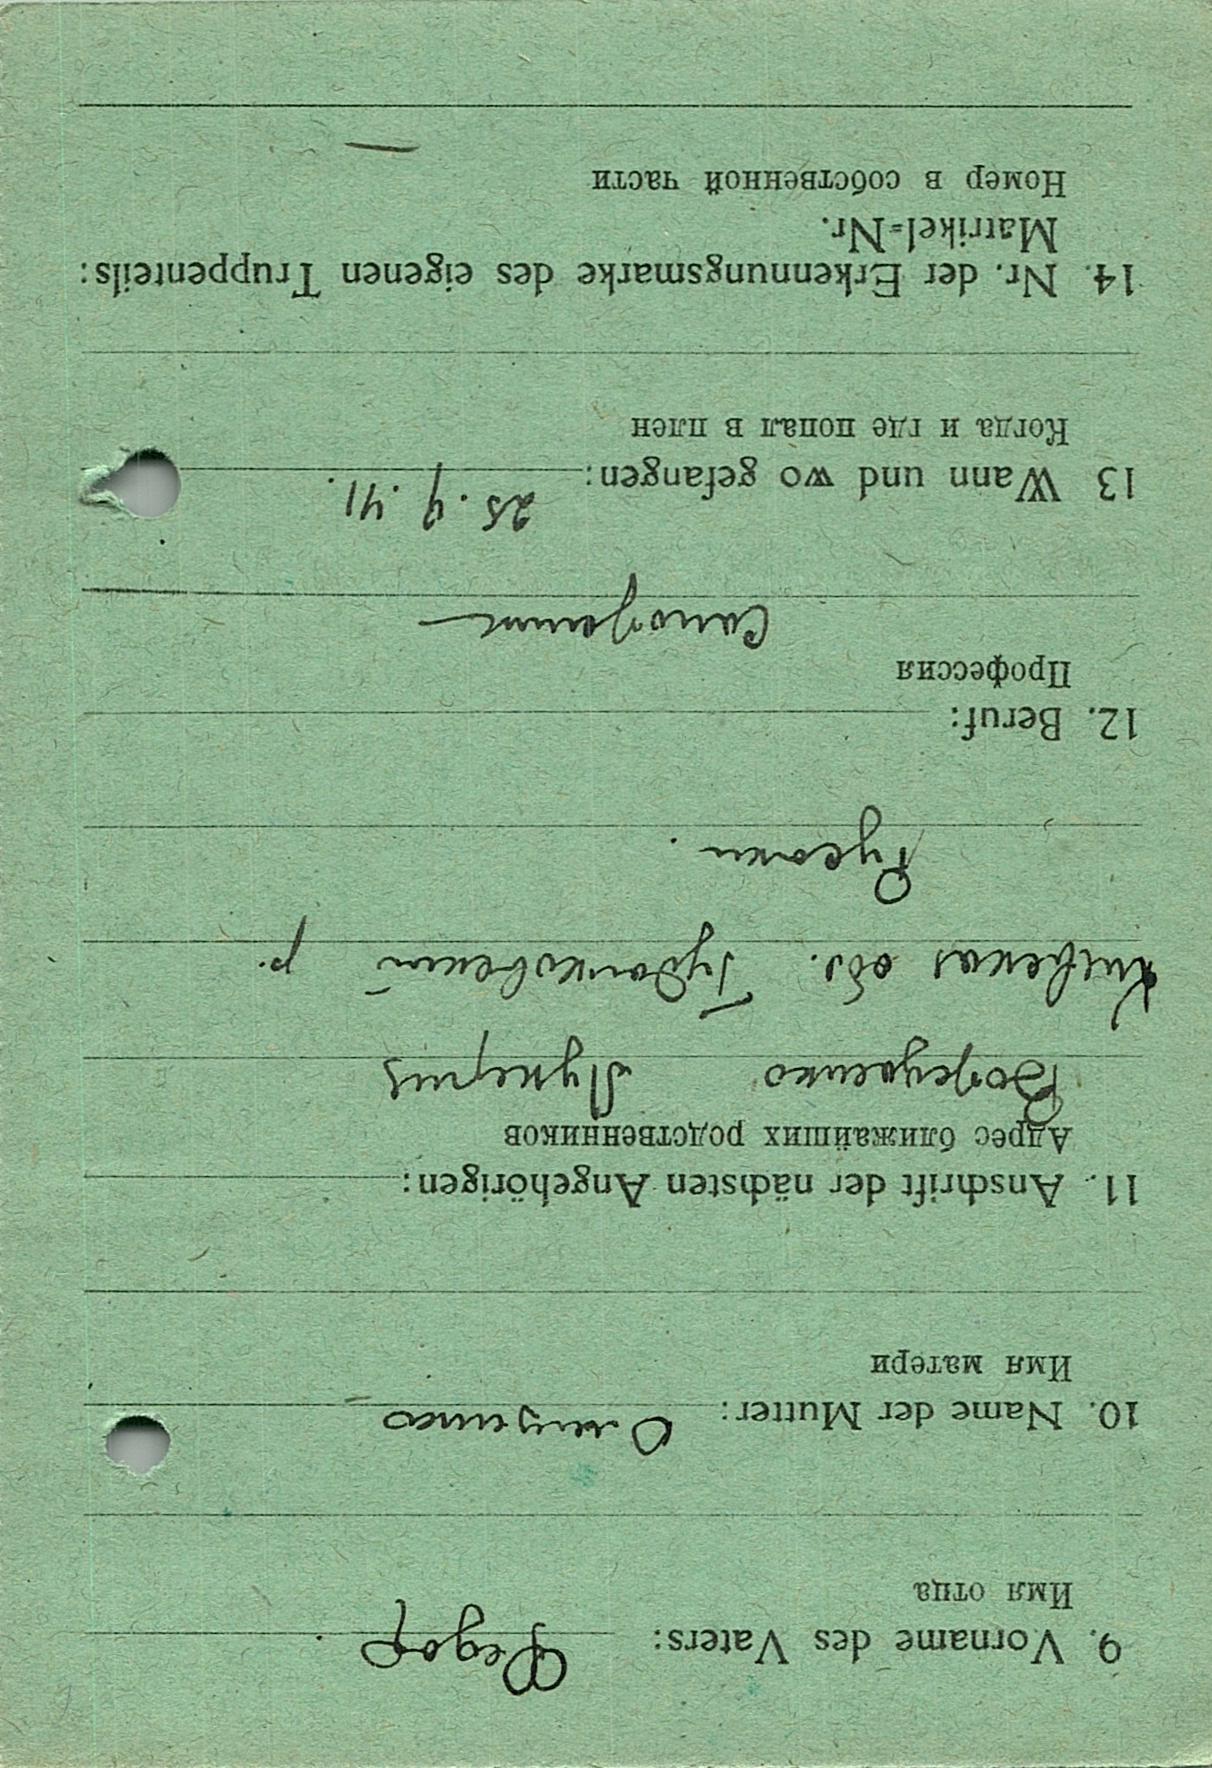 9. Vorname des Vaters: Федор.
Имя отца
10. Name der Mutter:
Имя матери
11. Anschrift der nächsten Angehörigen:
Адрес ближайших родственников
Лукерия
Киевская обл. р.
12. Beruf:
Профессия
13 Wann und wo gefangen: 25. 9. 41.
Когда и где попал в плен
14. Nr. der Erkennungsmarke des eigenen Truppenteils:
Matrikel=Nr.
Номер в собственной части
—